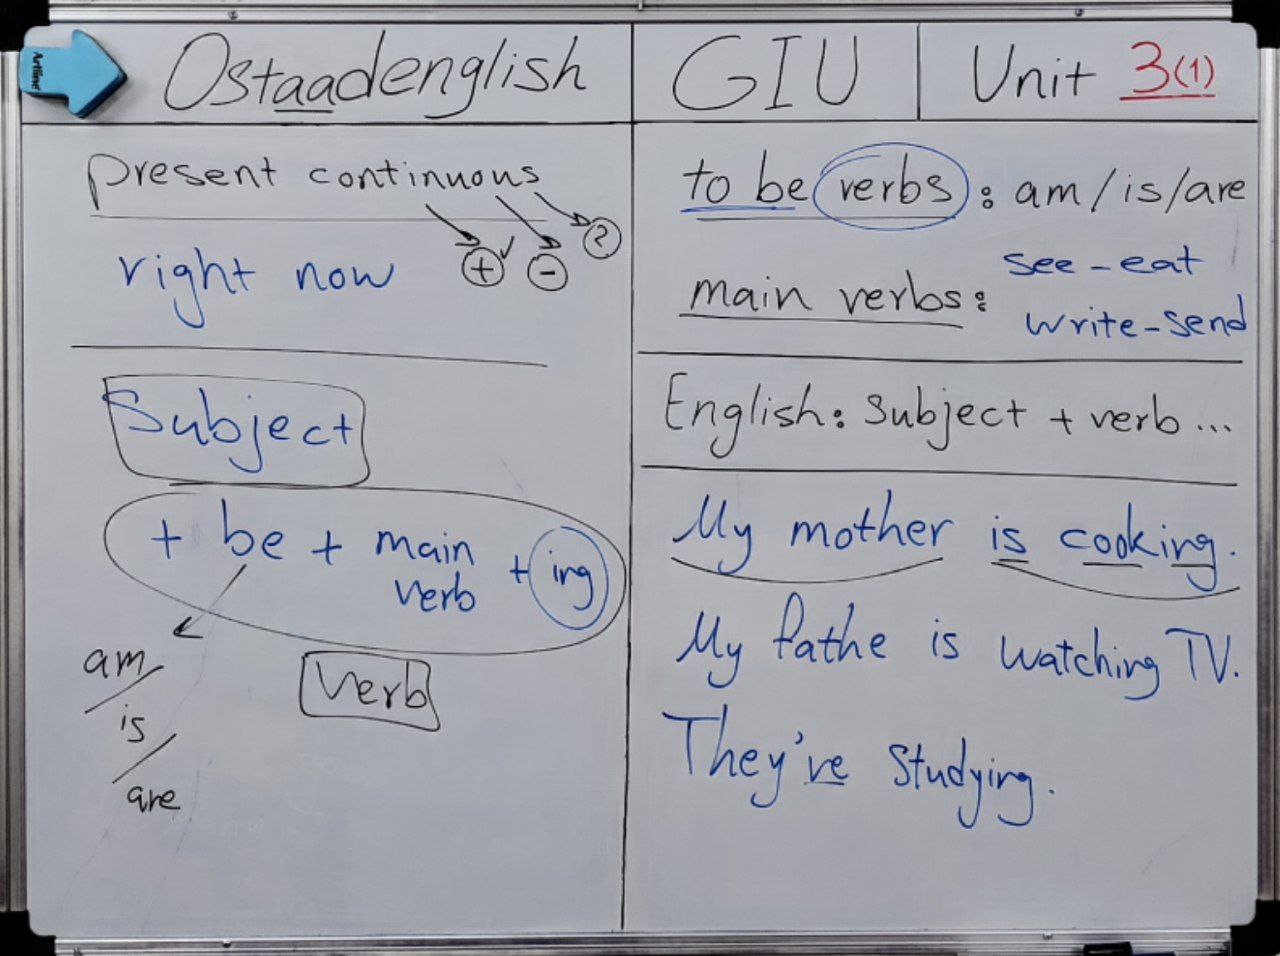 Artline
Ostaadenglish
GIU
Unit 3(1)
present continuous
+ ✓ - ?
right now
Subject
+ be + main verb + ing
am/
is/
are
Verb
to be verbs : am/is/are
main verbs : see - eat
write - send
English : Subject + verb ...
My mother is cooking.
My fathe is watching TV.
They're studying.